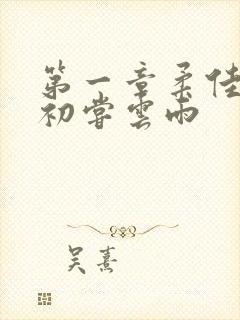 第一章柔佳
初尝雲雨
吴熹